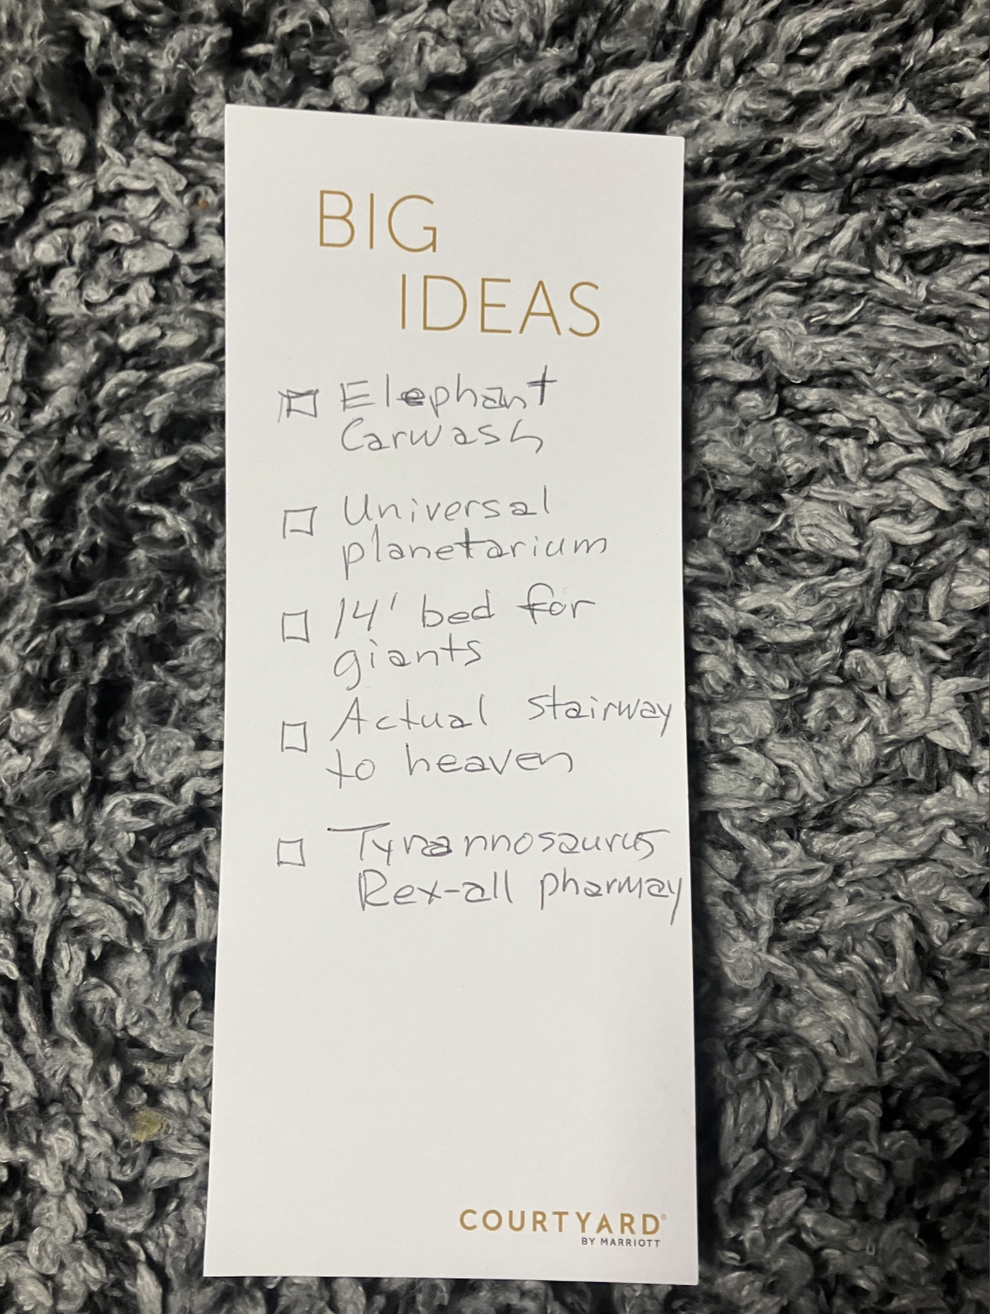 BIG
IDEAS
Elephant
Carwash
Universal
planetarium
14' bed for
giants
Actual stairway
to heaven
Tyrannosaurus
Rex-all pharmay
COURTYARD®
BY MARRIOTT